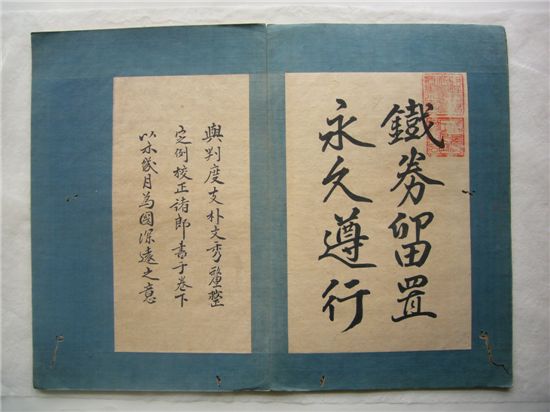 鐵券留置
永久遵行
與判度支朴文秀釐整
定例校正諸郎書于卷下
以示歲月為國深遠之意